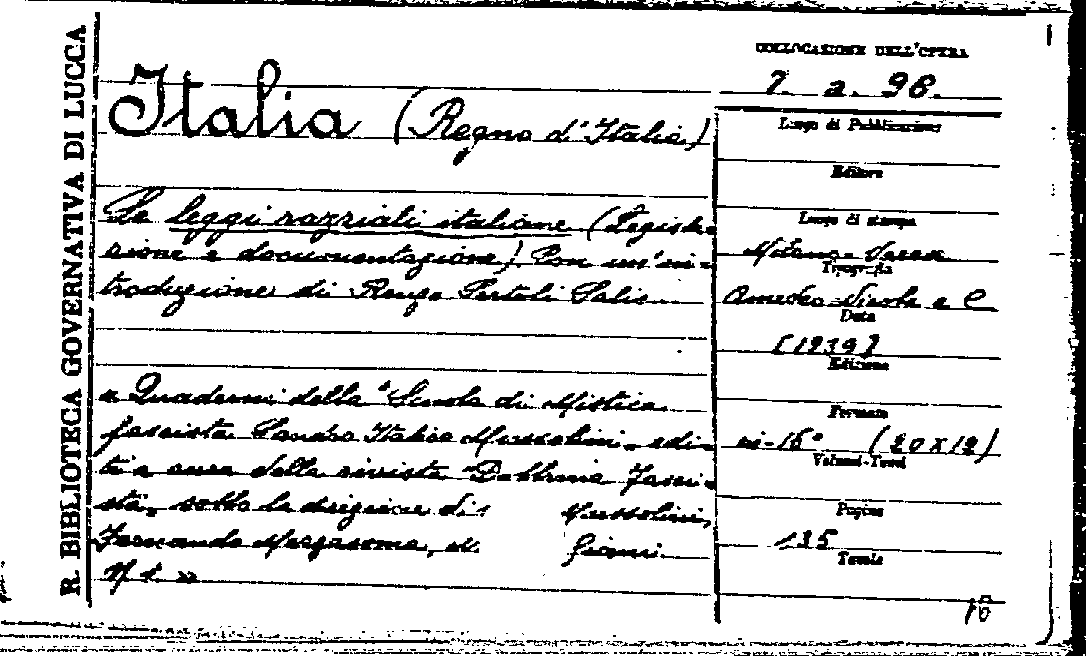 R. BIBLIOTECA GOVERNATIVA DI LUCCA
COLLOCAZIONE DELL'OPERA
7. a. 96.
Italia (Regno d'Italia)
Le leggi razziali italiane (Legisla-
zione e documentazione). Con un'in-
troduzione di Renzo Sertoli Salis
« Quaderni della "Scuola di Mistica
fascista Sandro Italico Mussolini" edi-
ti a cura della rivista "Dottrina Fasci-
sta", sotto la direzione di: Mussolini,
Fernando Mezzasoma, N. Giani.
N 1. »
Luogo di Pubblicazione
Editore
Luogo di stampa
Milano-Varese
Tipografia
Amedeo Nicola e C
Data
(1939)
Edizione
Formato
in-16° (20x12)
Volumi-Tomi
Pagine
135
Tavole